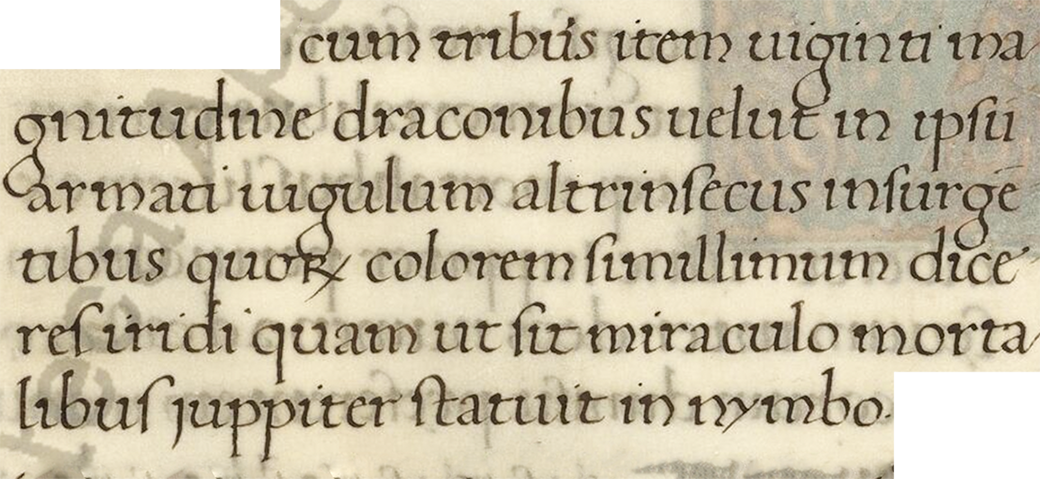 cum tribus item uiginti ma
gnitudine draconibus uelut in ipsū
armati iugulum altrinsecus insurgē
tibus quoꝝ colorem simillimum dice
res iridi quam ut sit miraculo morta
libus juppiter statuit in nymbo.